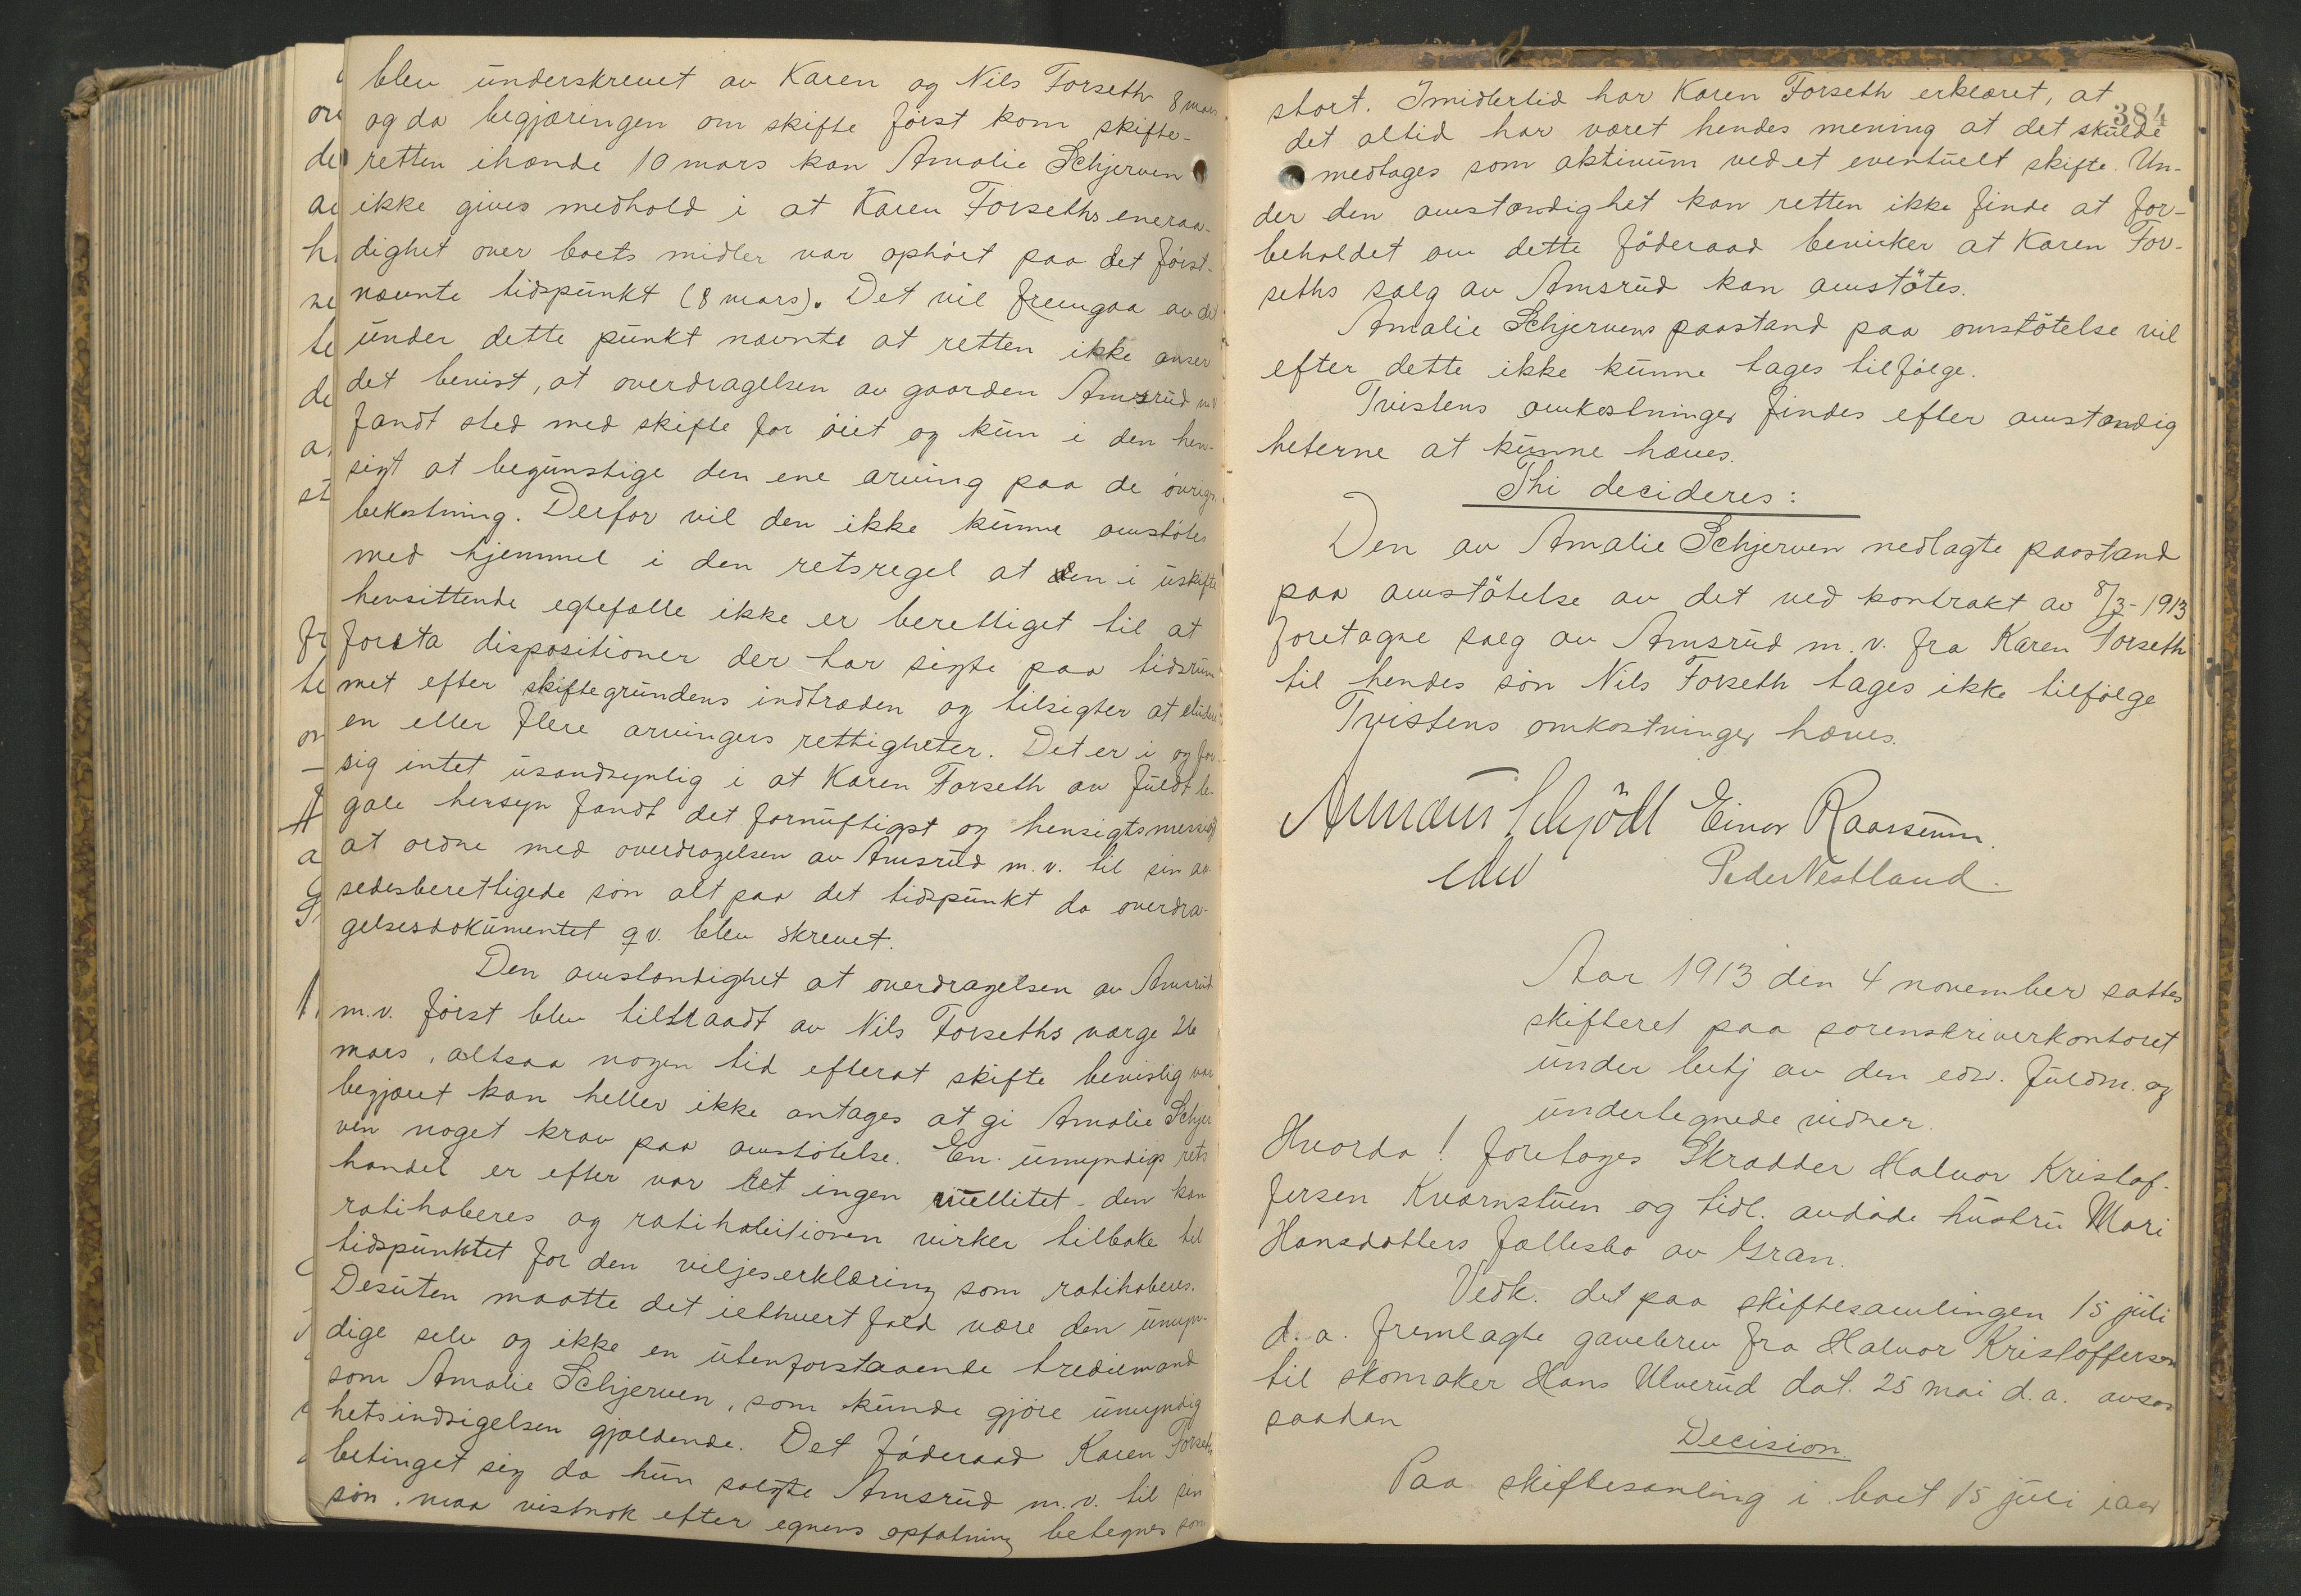 blev underskrevet av Karen og Nils Forseth 8 mars
og da begjæringen om skifte först kom skifte-
retten ihænde 10 mars kan Amalie Schjerven
ikke gives medhold i at Karen Forseths eneraa-
dighet over boets midler var ophört paa det först-
nævnte tidspunkt (8 mars). Det vil fremgaa av det
under dette punkt nævnte at retten ikke anser
det bevist, at overdragelsen av gaarden Amsrud m.v.
fandt sted med skifte for öiet og kun i den hen-
sigt at begunstige den ene arving paa de övriges
bekostning. Derfor vil den ikke kunne omstötes
med hjemmel i den retsregel at den i uskifte
hensittende egtefælle ikke er berettiget til at
foreta dispositioner der har sigte paa tidsrum-
met efter skiftegrundens indtræden og tilsigter at eludere
en eller flere arvingers rettigheter. Det er i og for
sig intet usandsynlig i at Karen Forseth av fuldt le-
gale hensyn fandt det fornuftigst og hensigtsmessigst
at ordne med overdragelsen av Amsrud m.v. til sin aa-
sedesberettigede sön alt paa det tidspunkt da overdra-
gelsesdokumentet qv. blev skrevet.
Den omstændighet at overdragelsen av Amsrud
m.v. först blev tiltraadt av Nils Forseths værge 26
mars, altsaa nogen tid efterat skifte bevislig var
begjæret kan heller ikke antages at gi Amalie Schjer
ven noget krav paa omstötelse. En umyndigs rets
handel er efter vor ret ingen nullitet - den kan
ratihaberes og ratihabitionen virker tilbake til
tidspunktet for den viljeserklæring som ratihaberes.
Desuten maatte det iethvert fald være den umyn-
dige selv og ikke en utenforstaaende trediemand
som Amalie Schjerven, som kunde gjöre umyndig
hetsindsigelsen gjældende. Det föderaad Karen Forseth
betinget sig da hun solgte Amsrud m.v. til sin
sön, maa vistnok efter egnens opfatning betegnes som
384
stort. Imidlertid har Karen Forseth erklæret, at
det altid har været hendes mening at det skulde
medtages som aktivum ved et eventuelt skifte. Un-
der den omstændighet kan retten ikke finde at for-
beholdet om dette föderaad bevirker at Karen For-
seths salg av Amsrud kan omstötes.
Amalie Schjervens paastand paa omstötelse vil
efter dette ikke kunne tages tilfölge.
Tvistens omkostninger findes efter omstændig
heterne at kunne hæves.
Thi decideres:
Den av Amalie Schjerven nedlagte paastand
paa omstötelse av det ved kontrakt av 8/3-1913
foretagne salg av Amsrud m.v. fra Karen Forseth
til hendes sön Nils Forseth tages ikke tilfölge
Tvistens omkostninger hæves.
Schjödt Einar Raassum.
edw Peder Nestland.
Aar 1913 den 4 november sattes
skifteret paa sorenskriverkontoret
under betj av den edsv. fuldm. og
undertegnede vidner.
Hvorda! foretages Skrædder Halvor Kristof-
fersen Kværnstuen og tidl. avdöde hustru Mari
Hansdatters fællesbo av Gran.
Vedk. det paa skiftesamlingen 15 juli
d.a. fremlagte gavebrev fra Halvor Kristoffersen
til skomaker Hans Ulverud dat. 25 mai d.a. avsaes
saadan
Decision.
Paa skiftesamling i boet 15 juli iaar